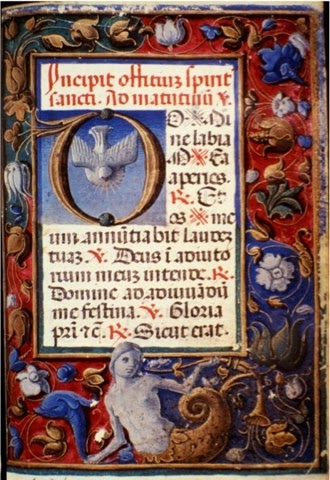 Incipit officiuz spirit
sancti. Ad matutinū ℣.
DO Mi
ne labia
M Ea
aperies.
℟. Et
os me
um annūtiabit laudez
tuaz. ℣. Deus ī adiuto
rium meuz intende. ℟.
Domine ad adiuvādū
me festina. ℣. Gloria
pri. ⁊c. ℟. Sicut erat.